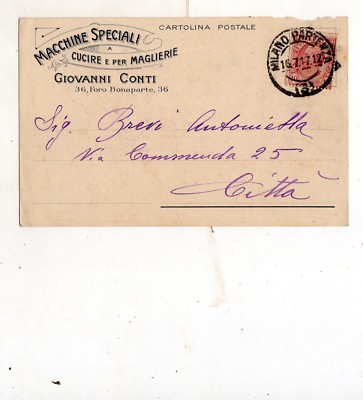 CARTOLINA POSTALE
MACCHINE SPECIALI
A
CUCIRE E PER MAGLIERIE
GIOVANNI CONTI
36, Foro Bonaparte, 36
MILANO PARTENZA
16.7.17.17
(3)
Sig. Brevi Antonietta
Via Commenda 25
Città